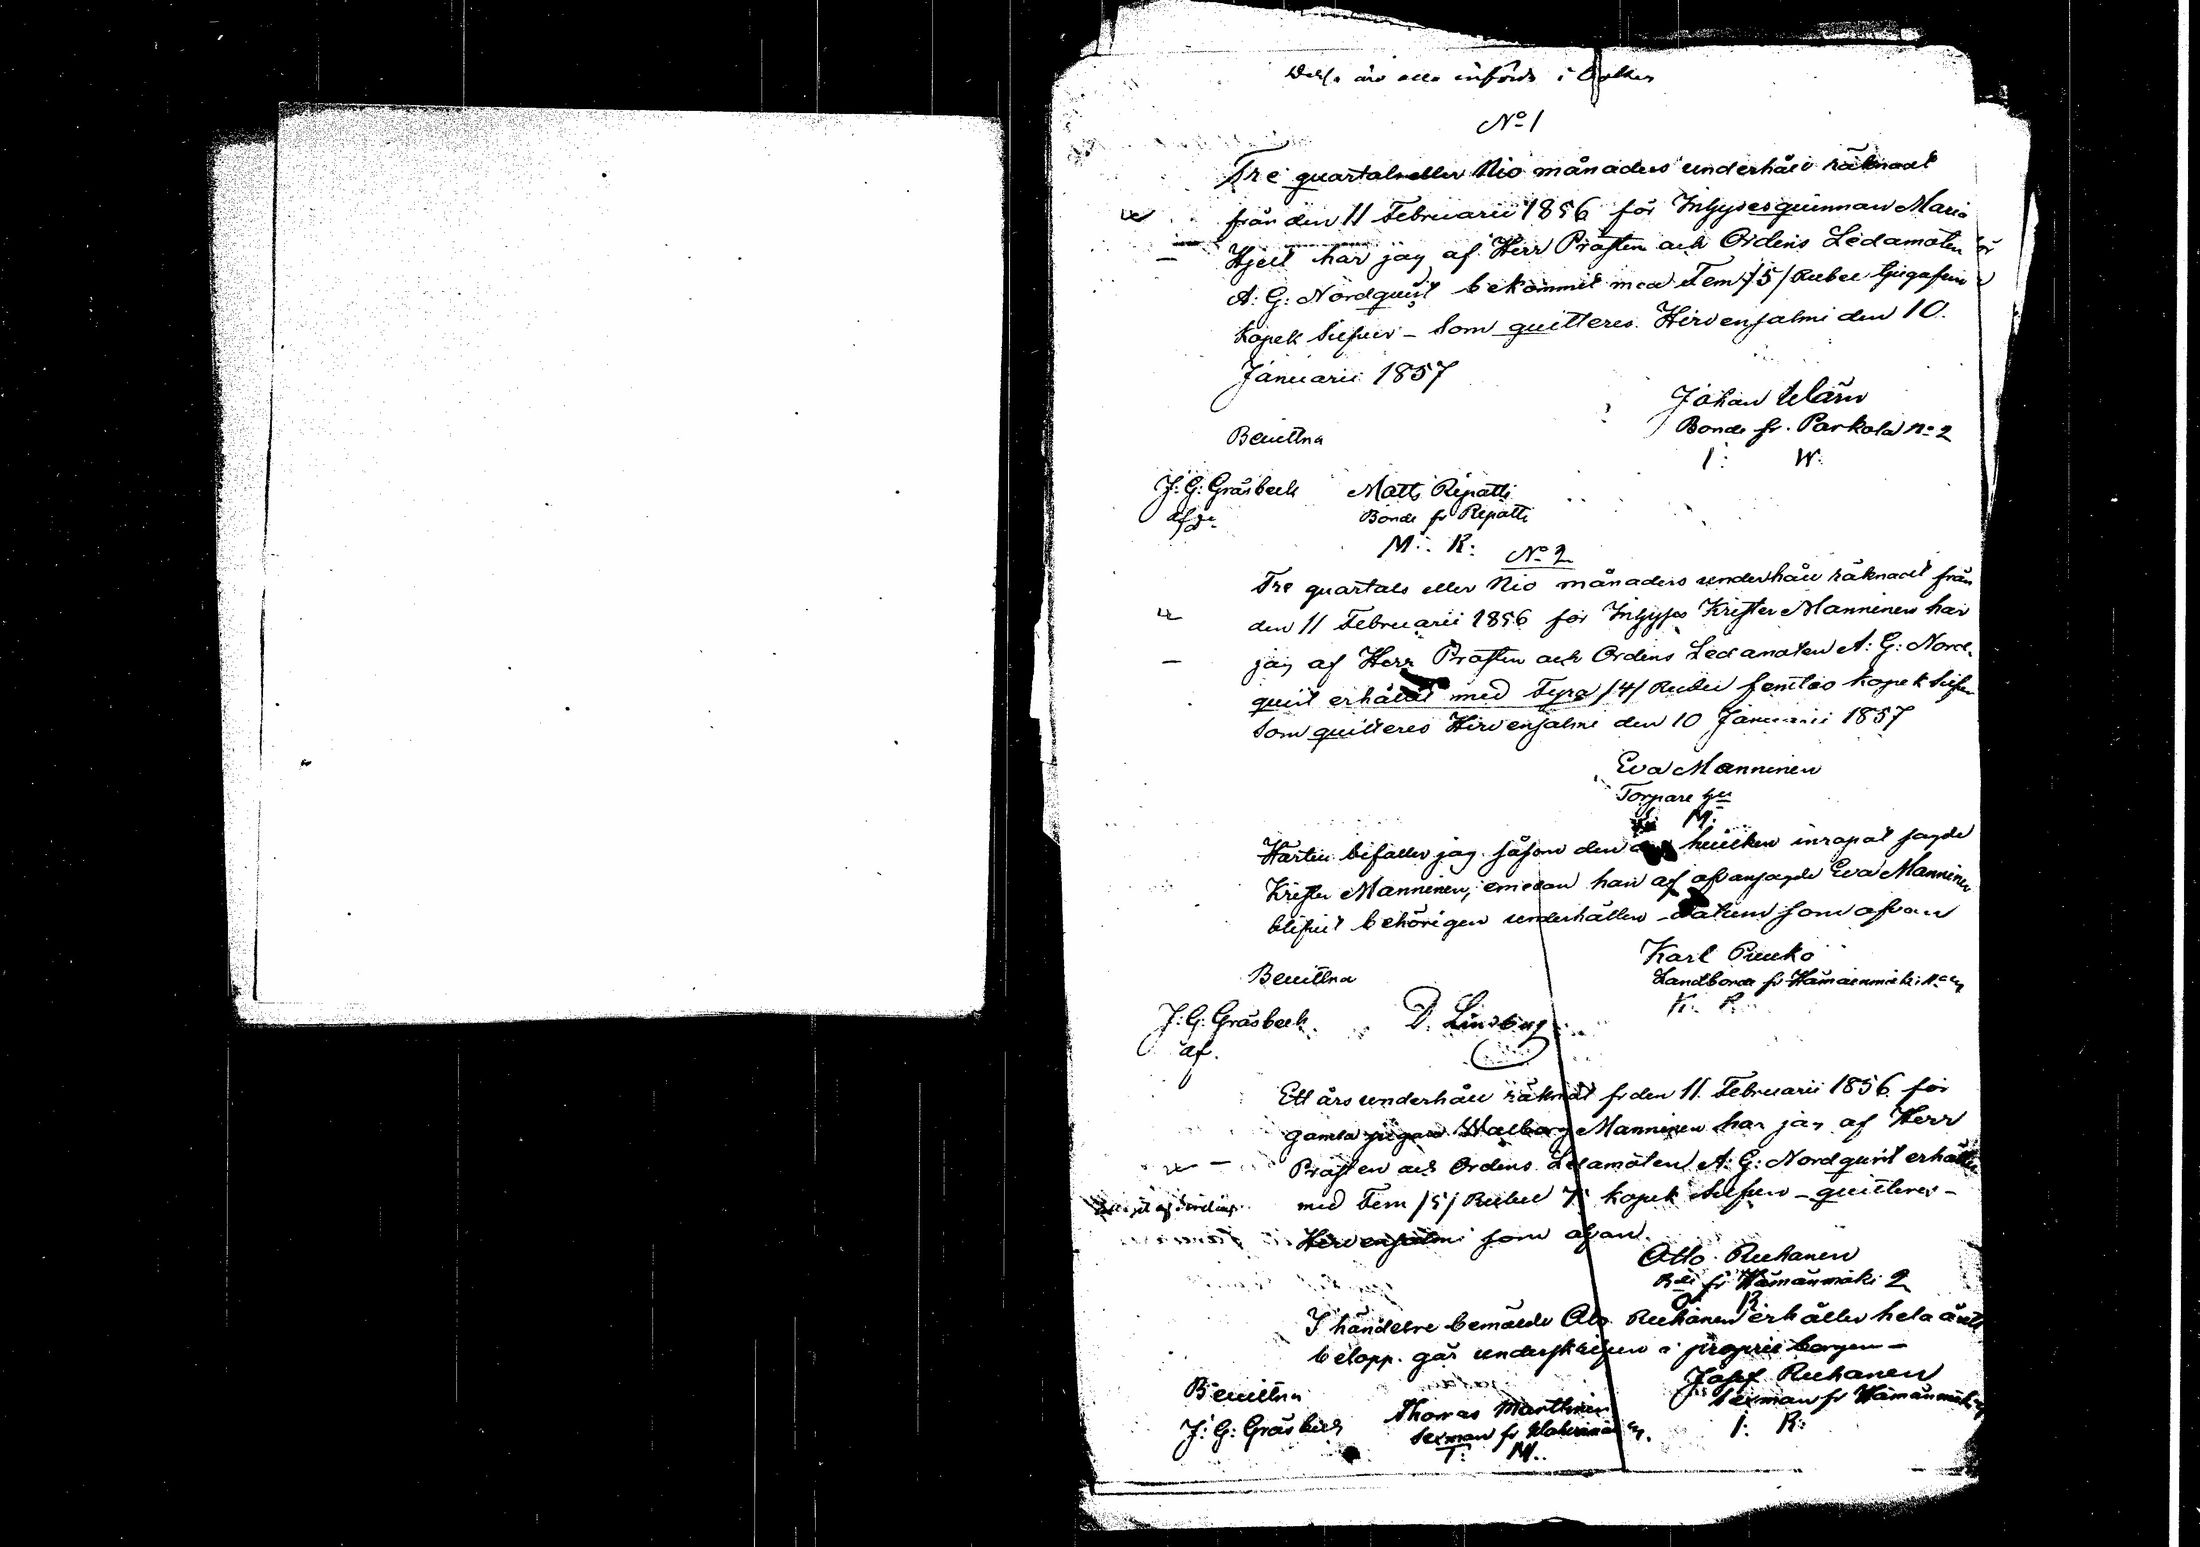 äro alla införde i
No 1
Tre quartals eller Nio månaders underhåll räknadt
från den 11 Februarii 1856 för Inhyses quinnan Maria
Hjelt har jag af Herr Prosten och Ordens Ledamoten
A: G: Nordquist bekommit med Fem /5/ Rubel
Kopek Silfver – Som quitteres. Hirvensalmi den 10.
Januarii 1857
Johan Wärn
Bonde fr. Parkola No 2
I: W:
Bevittna
J: G: Gråsbeck Matts Repatti
Bonde fr Repatti
M: R:
No 2
Tre quartals eller Nio månaders underhåll räknadt från
den 11 Februarii 1856 för Inhyses Krister Manninen har
jag af Herr Prosten och Ordens Ledamoten A: G: Nord-
quist erhållit med Fyra /4/ Rubel femtio kopek Silfver
Som quitteres Hirvensalmi den 10 Januarii 1857
Eva Manninen
Torpare
M:
Härtill jag såsom den hvilken sagde
Krister Manninen, emedan han af ofvansagde Eva Manninen
blifvit behörigen underhållen – datum som ofvan
Karl Puuko
Landbonde fr Hämäenmäki
K:
Bevittna
J: G: Gråsbeck D. Lindberg
af.
Ett års underhåll räknadt fr den 11 Februarii 1856 för
gamla pigan Walborg Manninen har jag af Herr
Prosten och Ordens Ledamoten A: G: Nordquist erhållit
med Fem /5/ Rubel kopek Silfver – quitteres –
Hirvensalmi som ofvan.
Otto Ruhanen
fr Hämänmäki 2
O: R:
I händelse bemälde Otto Ruhanen erhåller hela årets
belopp. går underskrifven i proprie borgen –
Josef Ruhanen
Sexman fr Hämänmäki
I: R:
Bevittna
J: G: Gråsbeck Thomas Marttinen
Sexman fr
T: M: